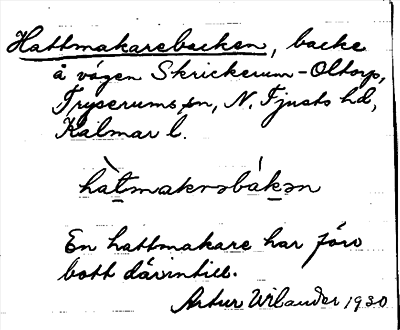 Hattmakarebacken, backe
å vägen Skrickerum-Oltorp,
Tryserums sn, N. Tjusts hd,
Kalmar l.
hàt̲makrəbák̲ən
En hattmakare har förr
bott därintill.
Artur Wilander 1930